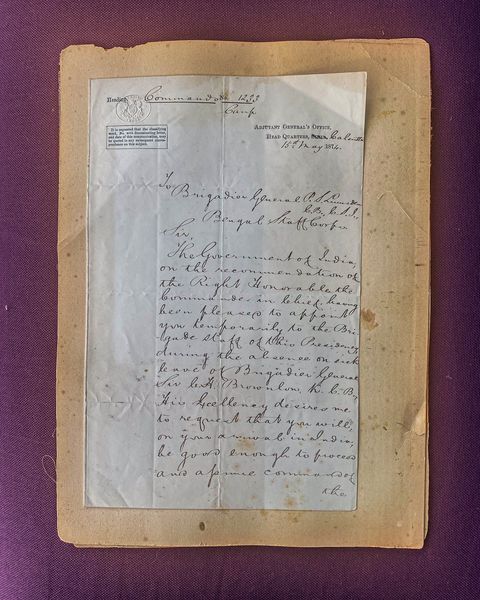 Heading Commands 1233
Camp
It is requested that the classifying
word, No. with distinguishing letter,
and date of this communication, may
be quoted in any subsequent corres-
pondence on this subject.
ADJUTANT GENERAL'S OFFICE,
HEAD QUARTERS, Calcutta
15th May 1874.
To
Brigadier General P. S. Lumsden
C.B., C.S.I.,
Bengal Staff Corps
Sir,
The Government of India,
on the recommendation of
the Right Honorable the
Commander in Chief, having
been pleased to appoint
you temporarily to the Bri-
gade Staff of this Presidency
during the absence on sick
leave of Brigadier General
Sir C. H. Brownlow, K. C. B,
His Excellency desires me
to request that you will,
on your arrival in India,
be good enough to proceed
and assume command of
the